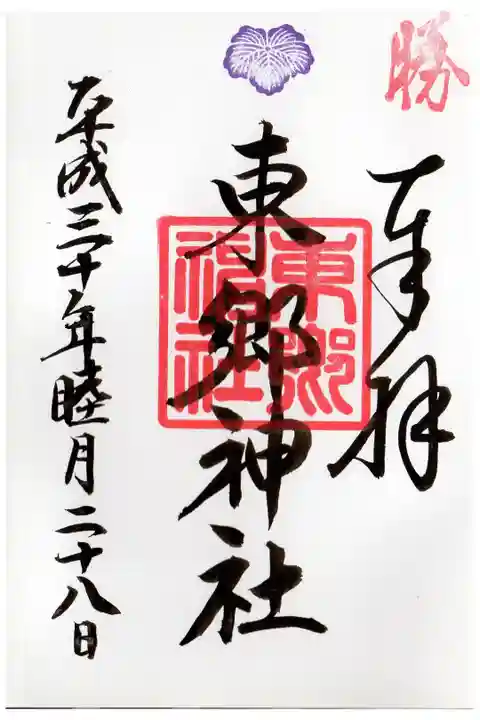 勝
奉拝
東郷神社
東郷神社
平成三十年睦月二十八日